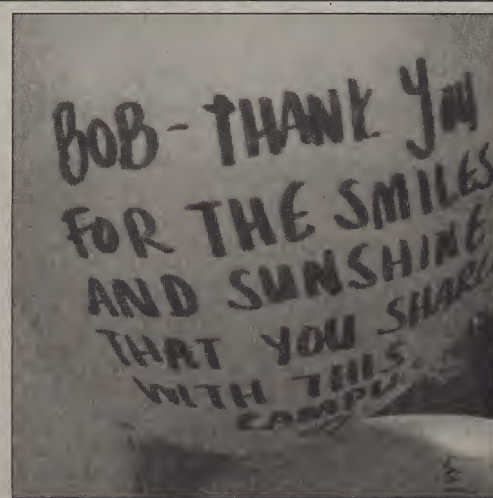 BOB - THANK YOU
FOR THE SMILES
AND SUNSHINE
THAT YOU
WITH THIS